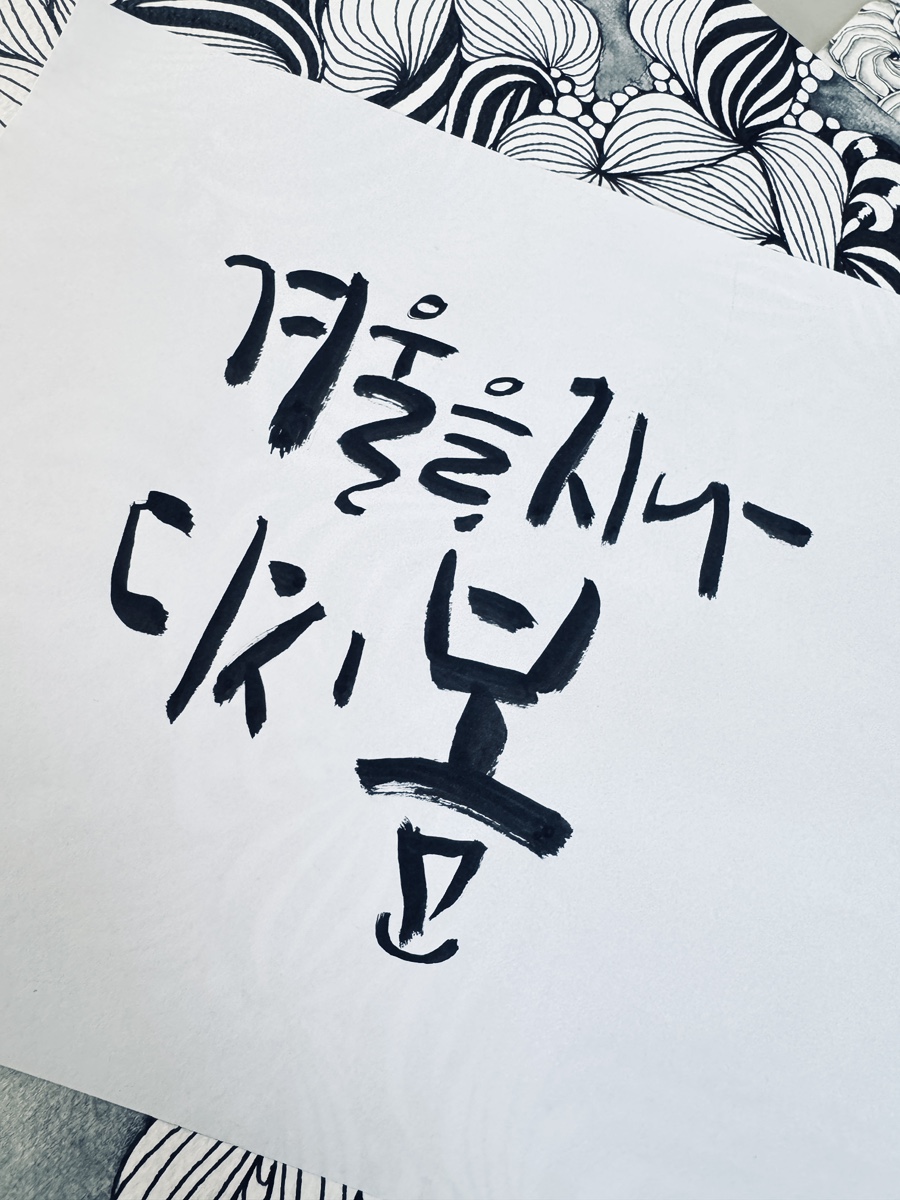 겨울을 지나
다시 봄